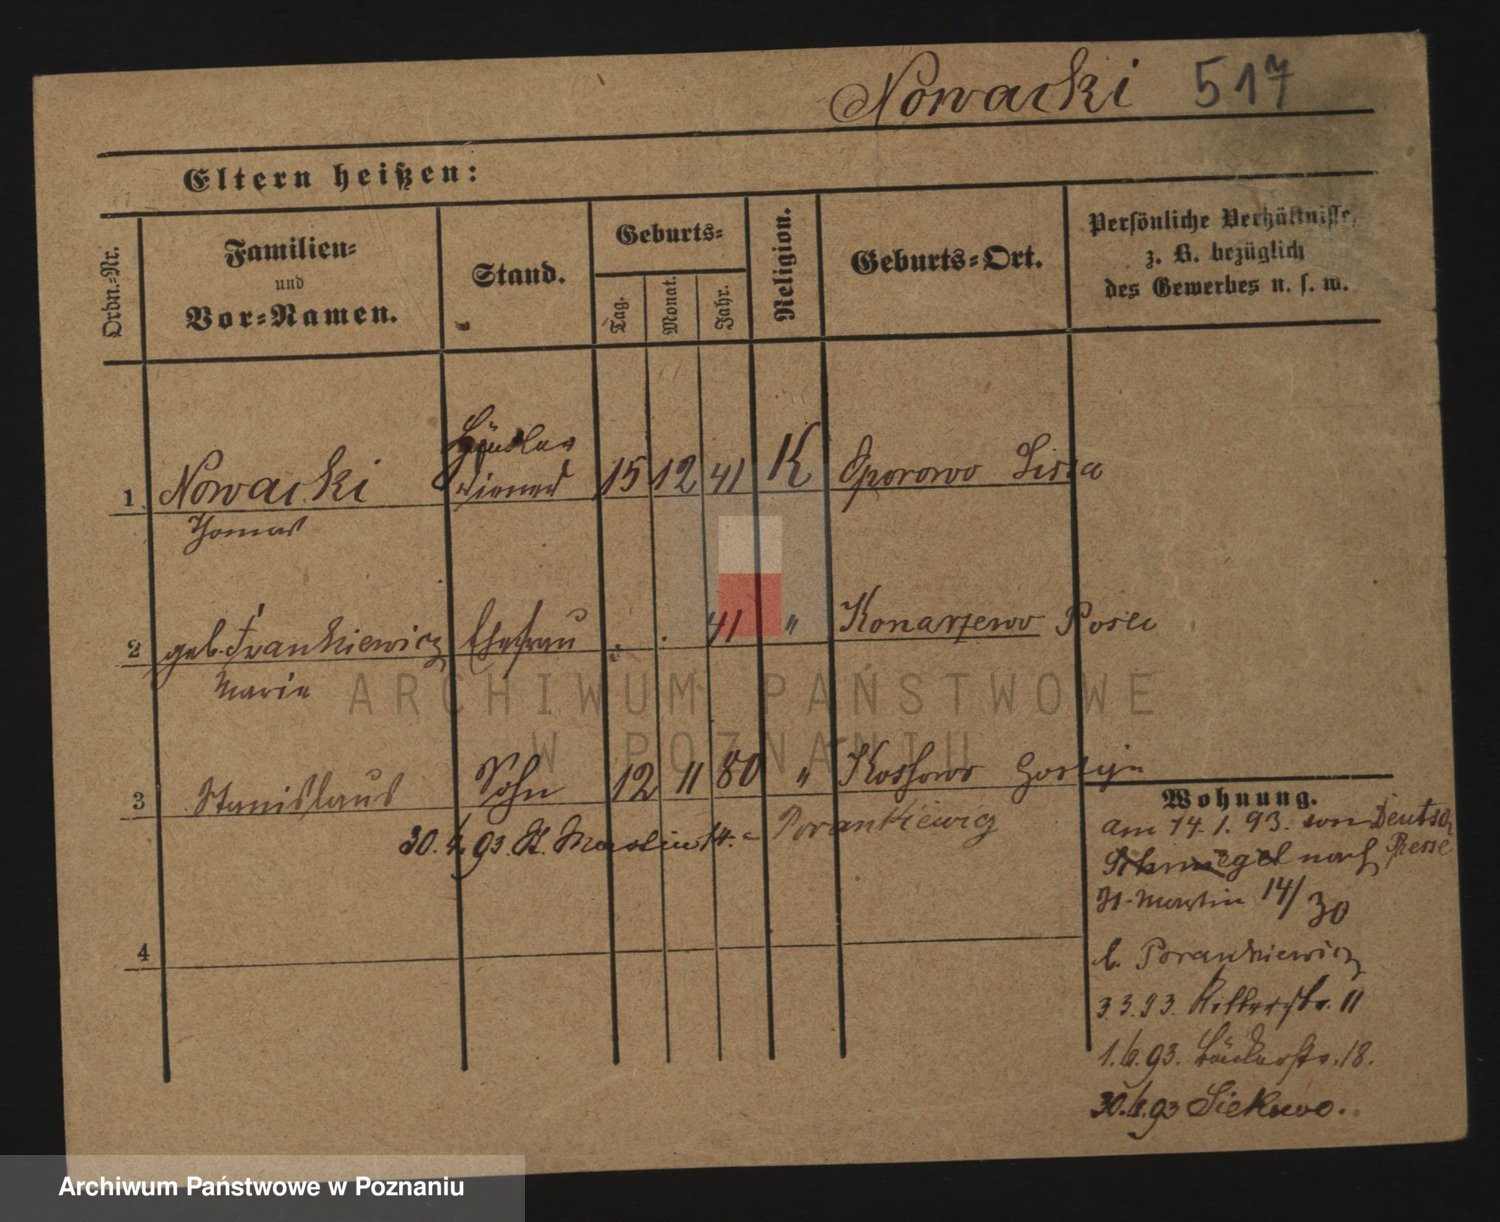 Nowacki 517
Eltern heißen:
Ordn.-Nr.
Familien-
und
Vor-Namen.
Stand.
Geburts-
Tag.
Monat.
Jahr.
Religion.
Geburts-Ort.
Persönliche Verhältnisse,
z. B. bezüglich
des Gewerbes u. s. w.
Händler
1 Nowacki 15 12 41 K Oporowo Lissa
Thomas
2 geb. Frankiewicz Ehefrau 41 " Konarzewo Posen
Maria
3 Stanislaus Sohn 12 11 80 " Gostyn
30. 93. St. Martin 14. Porankiewicz
4
Wohnung.
am 14. 1. 93. von Deutsch
Schmiegel nach Presse
St. Martin 14/30
b. Porankiewicz
3. 3. 93. Ritterstr. 11
1. 6. 93. Bäckerstr. 18.
30. 6. 93 Siekowo.
ARCHIWUM PAŃSTWOWE
W POZNANIU
Archiwum Państwowe w Poznaniu